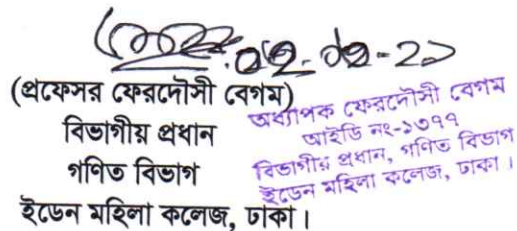 (প্রফেসর ফেরদৌসী বেগম)
বিভাগীয় প্রধান
গণিত বিভাগ
ইডেন মহিলা কলেজ, ঢাকা।
অধ্যাপক ফেরদৌসী বেগম
আইডি নং-১৩৭৭
বিভাগীয় প্রধান, গণিত বিভাগ
ইডেন মহিলা কলেজ, ঢাকা।